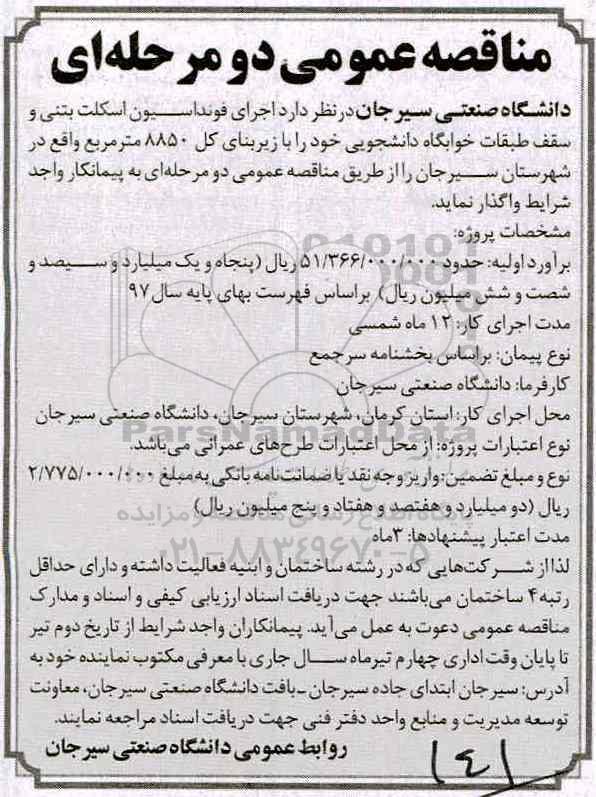 مناقصه عمومی دو مرحله‌ای
دانشگاه صنعتی سیرجان در نظر دارد اجرای فونداسیون اسکلت بتنی و
سقف طبقات خوابگاه دانشجویی خود را با زیربنای کل ۸۸۵۰ مترمربع واقع در
شهرستان سیرجان را از طریق مناقصه عمومی دو مرحله‌ای به پیمانکار واجد
شرایط واگذار نماید.
مشخصات پروژه:
برآورد اولیه: حدود ۵۱/۳۶۶/۰۰۰/۰۰۰ ریال (پنجاه و یک میلیارد و سیصد و
شصت و شش میلیون ریال) براساس فهرست بهای پایه سال ۹۷
مدت اجرای کار: ۱۲ ماه شمسی
نوع پیمان: براساس بخشنامه سرجمع
کارفرما: دانشگاه صنعتی سیرجان
محل اجرای کار: استان کرمان، شهرستان سیرجان، دانشگاه صنعتی سیرجان
نوع اعتبارات پروژه: از محل اعتبارات طرح‌های عمرانی می‌باشد.
ParsNamadData
نوع و مبلغ تضمین: واریز وجه نقد یا ضمانت‌نامه بانکی به مبلغ ۲/۷۷۵/۰۰۰/۰۰۰
ریال (دو میلیارد و هفتصد و هفتاد و پنج میلیون ریال)
پایگاه اطلاع رسانی مناقصه و مزایده
مدت اعتبار پیشنهادها: ۳ماه
۰۲۱-۸۸۳۴۹۶۷۰-۵
لذا از شرکت‌هایی که در رشته ساختمان و ابنیه فعالیت داشته و دارای حداقل
رتبه ۴ ساختمان می‌باشند جهت دریافت اسناد ارزیابی کیفی و اسناد و مدارک
مناقصه عمومی دعوت به عمل می‌آید. پیمانکاران واجد شرایط از تاریخ دوم تیر
تا پایان وقت اداری چهارم تیرماه سال جاری با معرفی مکتوب نماینده خود به
آدرس: سیرجان ابتدای جاده سیرجان ـ بافت دانشگاه صنعتی سیرجان، معاونت
توسعه مدیریت و منابع واحد دفتر فنی جهت دریافت اسناد مراجعه نمایند.
روابط عمومی دانشگاه صنعتی سیرجان
۱۴۱